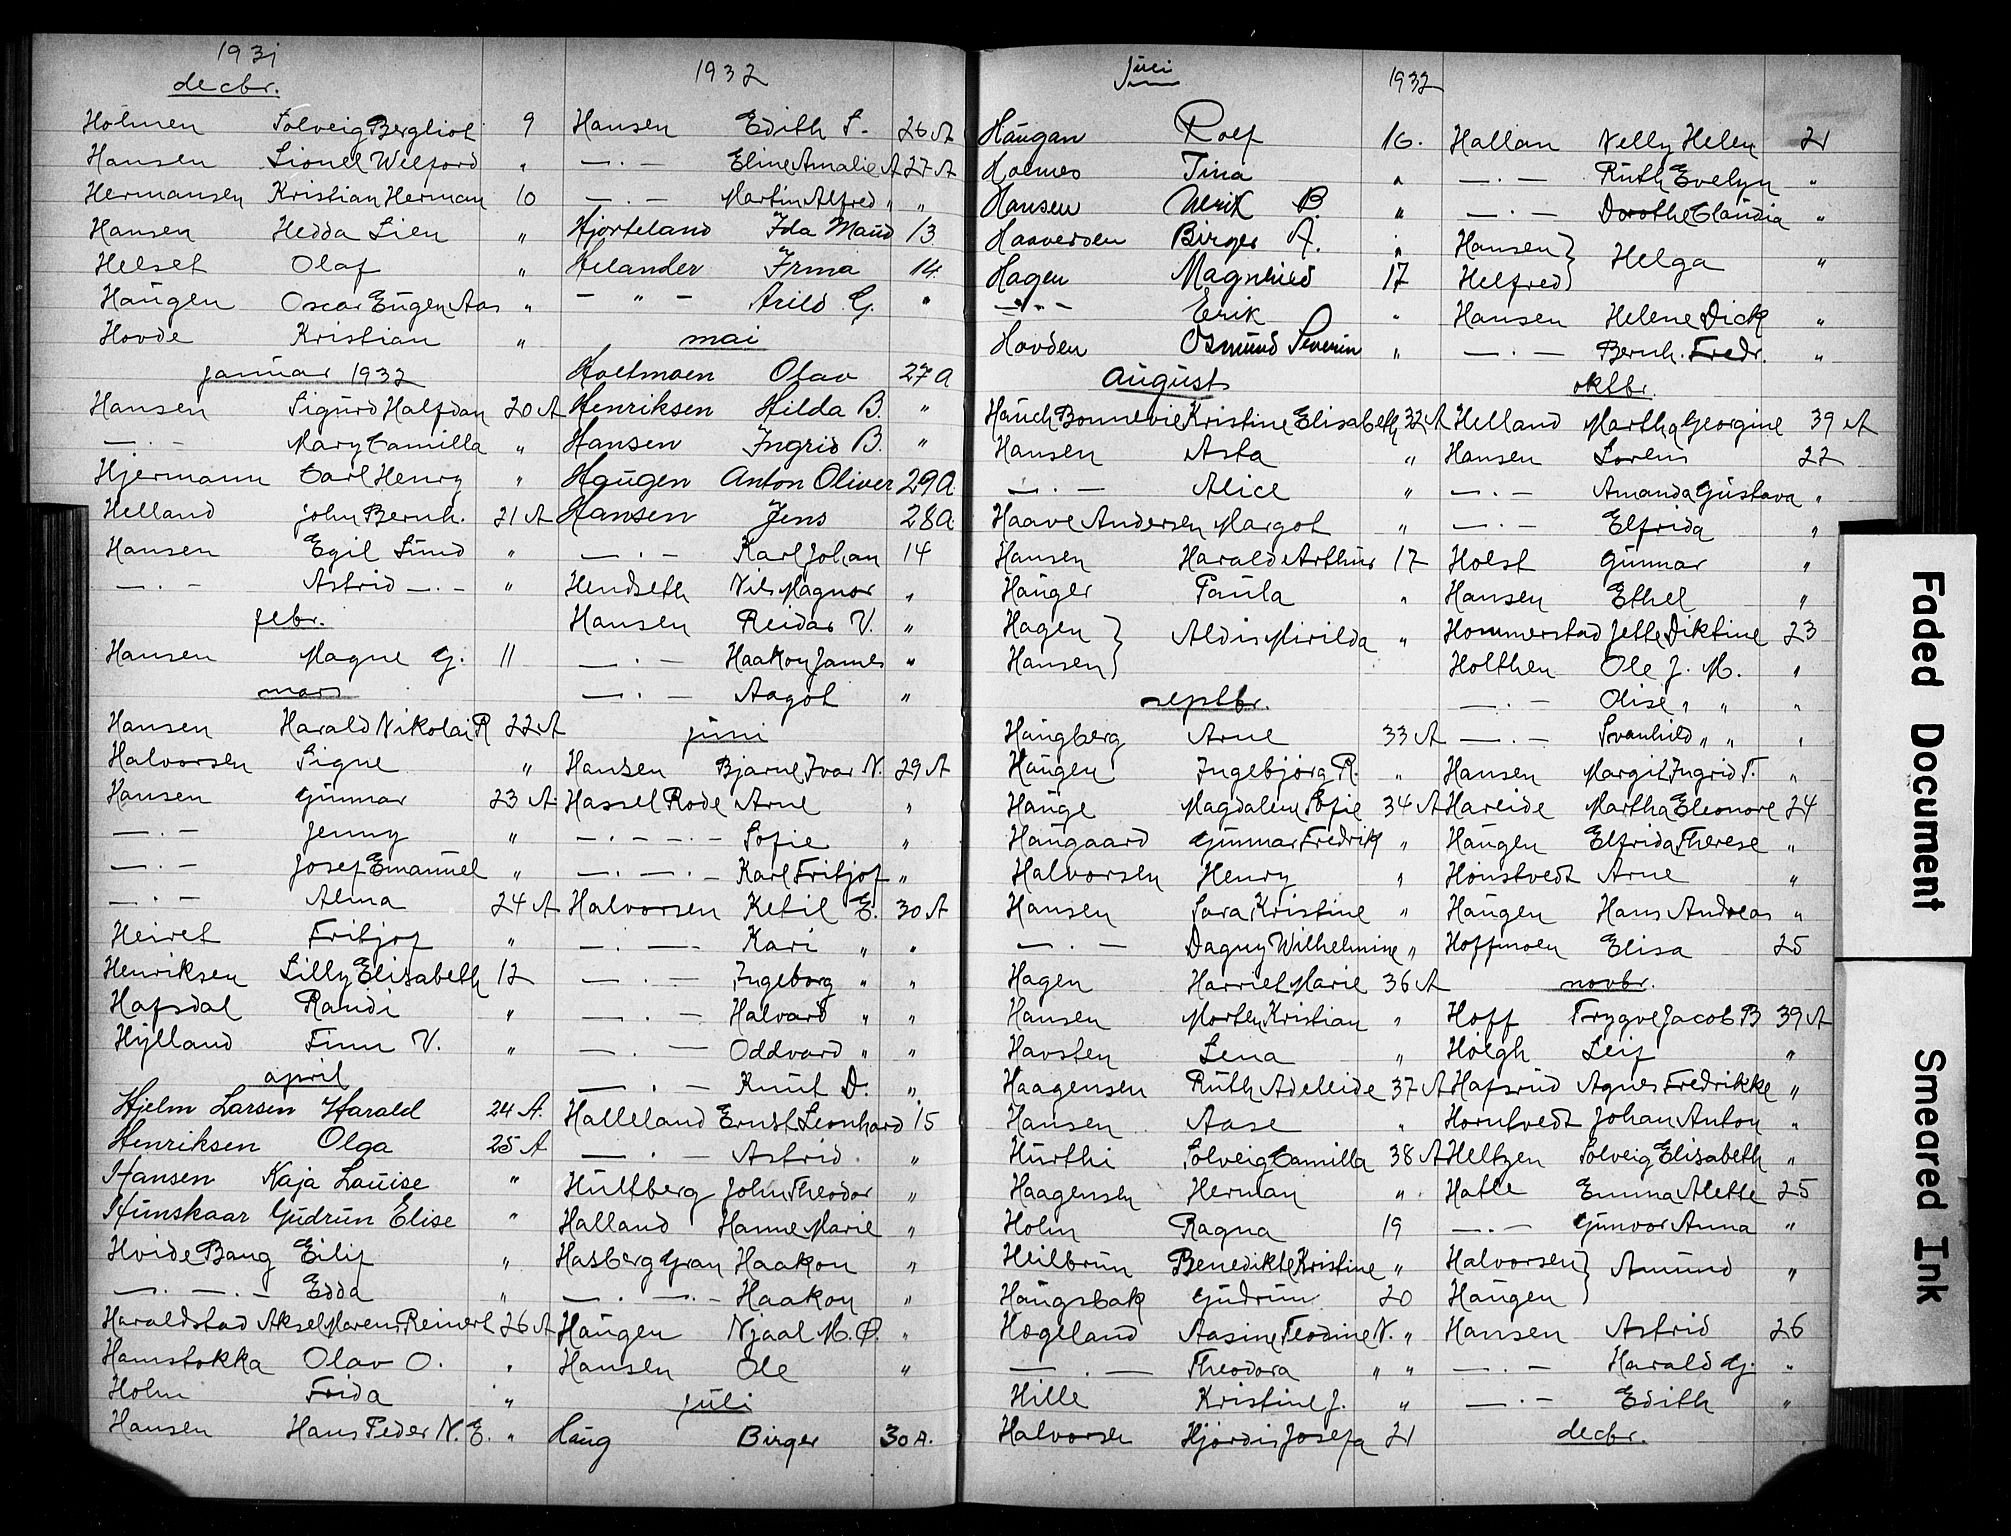 1931
decbr.
Holmen Solveig Bergliot 9
Hansen Lionel Wilford "
Hermansen Kristian Herman 10
Hansen Hedda Lien "
Helset Olaf "
Haugen Oscar Eugen Aas "
Hovde Kristian "
januar 1932
Hansen Sigurd Halfdan 20 A
—.— Mary Camilla "
Hjermann Carl Henry "
Helland John Bernh. 21 A
Hansen Egil Lund "
—.— Astrid —.— "
febr.
Hansen Magne G. 11
mars
Hansen Harald Nikolai R 22 A
Halvorsen Signe "
Hansen Gunnar 23 A
—.— Jenny "
—.— Josef Emanuel "
—.— Alma 24 A
Heiret Fritjof "
Henriksen Lilly Elisabeth 12
Hafsdal Randi "
Hylland Finn V. "
april
Hjelm Larsen Harald 24 A.
Henriksen Olga 25 A
Hansen Kaja Louise "
Hunskaar Gudrun Elise "
Hvide Bang Eilif "
—.—.— Edda "
Haraldstad Aksel Marens Reinert 26 A
Hamstokka Olav O. "
Holm Frida "
Hansen Hans Peder N. E. "
1932
Hansen Edith S. 26 A
—.— Eline Amalie A 27 A
—.— Martin Alfred " "
Hjorteland Ida Maud 13
Helander Irma 14
— " — Arild G. "
mai
Holtmoen Olav 27 a
Henriksen Hilda B. "
Hansen Ingrid B. "
Haugen Anton Oliver 29 a
Hansen Jens 28 a
—.— Karl Johan 14
Hendseth Nils Magnor "
Hansen Reidar V. "
—.— Haakon James "
—.— Aagot "
juni
Hansen Bjarne Ivar N. 29 A
Hassel Rode Arne "
—.—.— Sofie "
—.—.— Karl Fritjof "
Halvorsen Ketil E. 30 A
—.— Kari " "
—.— Ingeborg " "
—.— Halvard " "
—.— Oddvard " "
—.— Knut D. "
Halleland Ernst Leonhard 15
—.— Astrid "
Hultberg John Theodor "
Halland Hanne Marie "
Hasberg Gran Haakon "
—.—.— Haakon "
Haugen Njaal M. Ø. "
Hansen Ole "
juli
Haug Birger 30 A.
juli 1932
Haugan Rolf 16.
Holmes Tina "
Hansen Ulrik B. "
Haaversen Birger A. "
Hagen Magnhild 17
—"— Erik "
Hovden Osmund Severin "
August
Hauch Bonnevie Kristine Elisabeth 32 A
Hansen Asta "
—.— Alice "
Haave Andersen Margot "
Hansen Harald Arthur 17
Hauger Paula "
Hagen } Aldis Mirilda "
Hansen }
septbr.
Haugberg Arne 33 A
Haugen Ingebjørg R. "
Hauge Magdalene Sofie 34 A
Haugaard Gunnar Fredrik "
Halvorsen Henry "
Hansen Sara Kristine "
—.— Dagny Wilhelmine "
Hagen Harriet Marie 36 A
Hansen Morten Kristian "
Havsten Lena "
Haagensen Ruth Adeleide 37 A
Hansen Aase "
Hurthi Solveig Camilla 38 A
Haagensen Herman "
Holm Ragna 19
Heilbrun Benedikte Kristine "
Haugsbak Gudrun 20
Hogeland Aasine Teodine N. "
—.— Theodora " "
Hille Kristine J. "
Halvorsen Hjørdis Josefa 21
Hallan Nelly Helen 21
—.— Ruth Evelyn "
—.— Dorothe Claudia "
Hansen } Helga "
Helfred }
Hansen Helene Dick "
—.— Bernh. Fredr. "
oktbr.
Helland Martha Georgine 39 A
Hansen Lorens 22
—.— Amanda Gustava "
—.— Elfrida "
Holst Gunnar "
Hansen Ethel "
Hommerstad Jette Diktine 23
Holthen Ole J. M. "
—.— Olise " " "
—.— Svanhild " " "
Hansen Margit Ingrid T. "
Hareide Martha Eleonore 24
Haugen Elfrida Therese "
Honstvedt Arne "
Haugen Hans Andreas "
Hoffmoen Elisa 25
novbr.
Hoff Trygve Jacob B 39 A
Holgh Leif "
Hafsrud Agnes Fredrikke "
Horntvedt Johan Anton "
Heltzen Solveig Elisabeth "
Hatle Emma Alette 25
—.— Gunvor Anna "
Halvorsen } Amund "
Haugen }
Hansen Astrid 26
—.— Harald G. "
—.— Edith "
decbr.
Faded Document
Smeared Ink